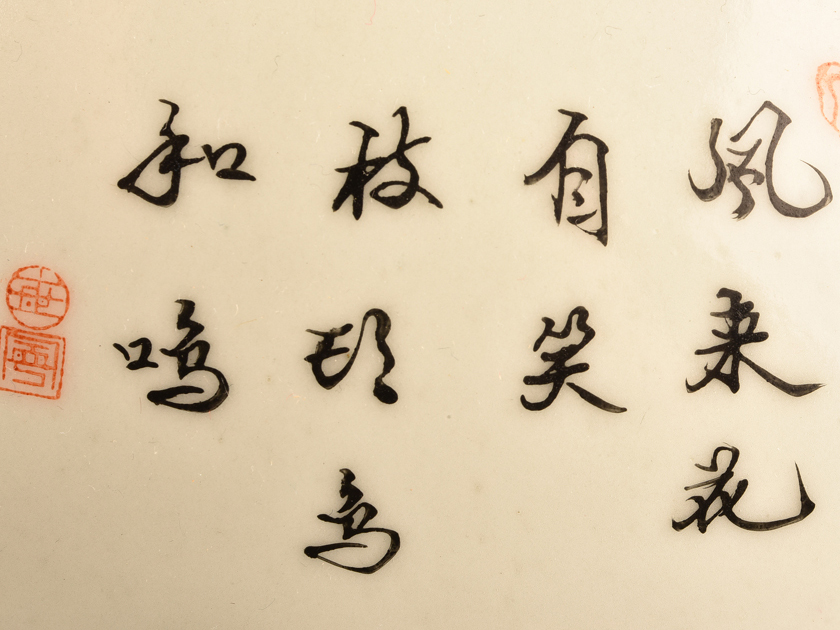 風来花
自笑
枝頭鳥
和鳴